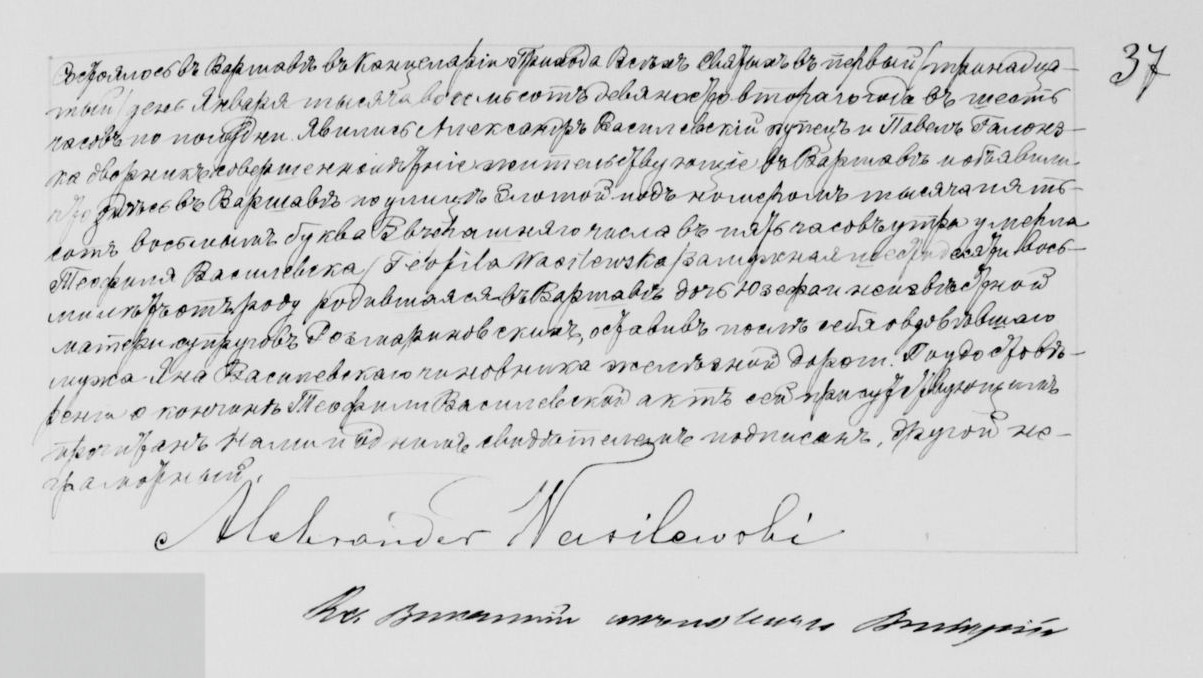 37
Состоялось въ Варшавѣ въ Канцеляріи Прихода Всѣхъ Святыхъ въ первый /тринадца-
тый/ день Января тысяча восемьсотъ девяносто втораго года въ шесть
часовъ по полудни. Явились Александръ Василевскій купецъ и Павелъ Галонз-
ка дворникъ совершеннолѣтніе жительствующіе въ Варшавѣ и объявили
что здѣсь въ Варшавѣ по улицѣ Злотой подъ номеромъ тысяча пять-
сотъ восьмымъ буква З вчерашняго числа въ пять часовъ утра умерла
Теофиля Василевска /Teofila Wasilewska/ замужная шестьдесяти вось-
ми лѣтъ отъ роду родившаяся въ Варшавѣ дочь Юзефа и неизвѣстной
матери супруговъ Розмариновскихъ, оставивъ послѣ себя овдовѣвшаго
мужа Яна Василевскаго чиновника желѣзной дороги. По удостовѣ-
реніи о кончинѣ Теофили Василевской актъ сей присутствующимъ
прочитанъ Нами и однимъ свидѣтелемъ подписанъ, другой не-
грамотный.
Aleksander Wasilewski
Кс. Викентій